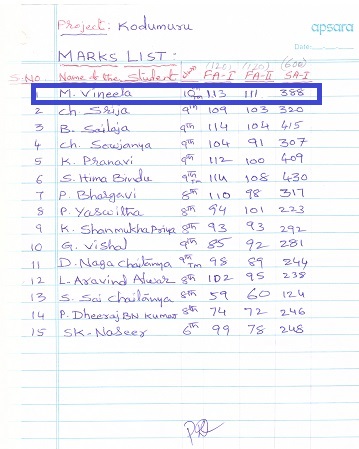 Project: Kodumuru
apsara
Date:
MARKS LIST:
(120) (120) (600)
S.NO. Name of the Student Class FA-I FA-II SA-I
1 M. Vineela 10th Tm 113 111 388
2 ch. Srija 9th 109 103 320
3 B. Sailaja 9th 114 104 415
4 ch. Sowjanya 9th 104 91 307
5 K. Pranavi 9th 112 100 409
6 S. Hima Bindu 9th Tm 114 108 430
7 P. Bhargavi 8th 110 98 317
8 P. Yaswitha 8th 94 101 223
9 K. Shanmukha Priya 8th 93 93 292
10 G. Vishal 9th 85 92 281
11 D. Naga Chaitanya 9th Tm 98 89 244
12 L. Aravind 8th 102 95 238
13 S. Sai Chaitanya 8th 59 60 124
14 P. Dheeraj BN Kumar 8th 74 72 246
15 SK. Naseer 6th 99 78 248